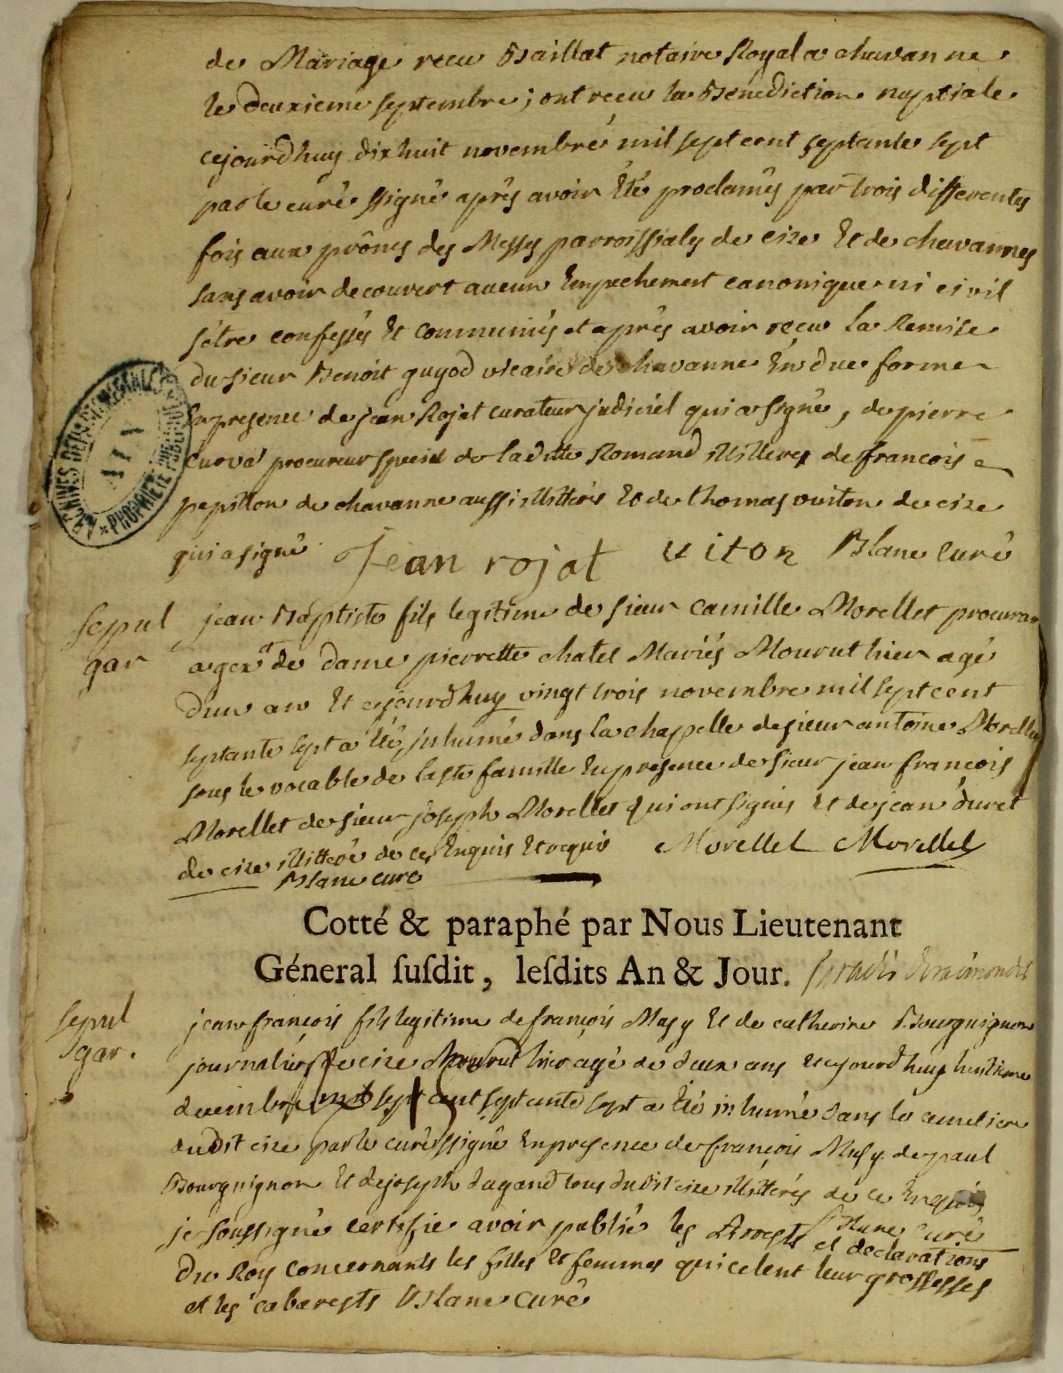 de Mariage reçu Baillat notaire Royal a chavanne
le deuxieme septembre ; ont reçu la Benediction nuptiale
cejourdhuy dix huit novembre mil sept cent septante sept
par le curé ssigné aprés avoir Eté proclamés par trois differentes
fois aux prônes des Messes parroissiales de cize Et de chavannes
sans avoir decouvert aucun Empechement canonique ni civil
s'étre confessés Et communiés et aprés avoir reçu la Remise
du sieur Benoit guyod vicaire de chavanne En due forme
En presence de jean Rojat curateur judiciel qui a signé, de pierre
curva procureur special de la ditte Romand illiteres de francois
papillon de chavanne aussi illitterés Et de thomas vuiton de cize
qui a signé Jean rojat uiton Blanc Curé
ARCHIVES DEPARTEMENTALES
AIN
PROPRIETE PUBLIQUE
sepul
gar
jean Baptiste fils legitime de sieur Camille Morellet procureur
a gex et de dame pierrette chatel Mariés Mourut hier agé
d'un an Et cejourdhuy vingt trois novembre mil sept cent
septante sept a été inhumé dans la chapelle de sieur antoine Morellet
sous le vocable de la ste famille En presence de sieur jean francois
Morellet de sieur joseph Morellet qui ont signés Et de jean duret
de cize illitteré de ce Enquis Et requis Morellet Morellet
Blanc curé
Cotté & paraphé par Nous Lieutenant
Géneral susdit, lesdits An & Jour.
sepul
gar.
jean françois fils legitime de françois Masy Et de catherine Bourguignon
journaliers de cize Mourut hier agé de deux ans Et cejourdhuy huitieme
decembre mil sept cent septante sept a Eté inhumé dans le cimetiere
dudit cize par le curé ssigné En presence de françois Masy de paul
Bourguignon Et de joseph dagand tous dudit cize illitterés de ce Enquis
Blanc curé
je soussigné certifie avoir publié les Arrests et declarations
du Roy concernants les filles Et femmes qui celent leur grossesses
et les cabarests Blanc curé